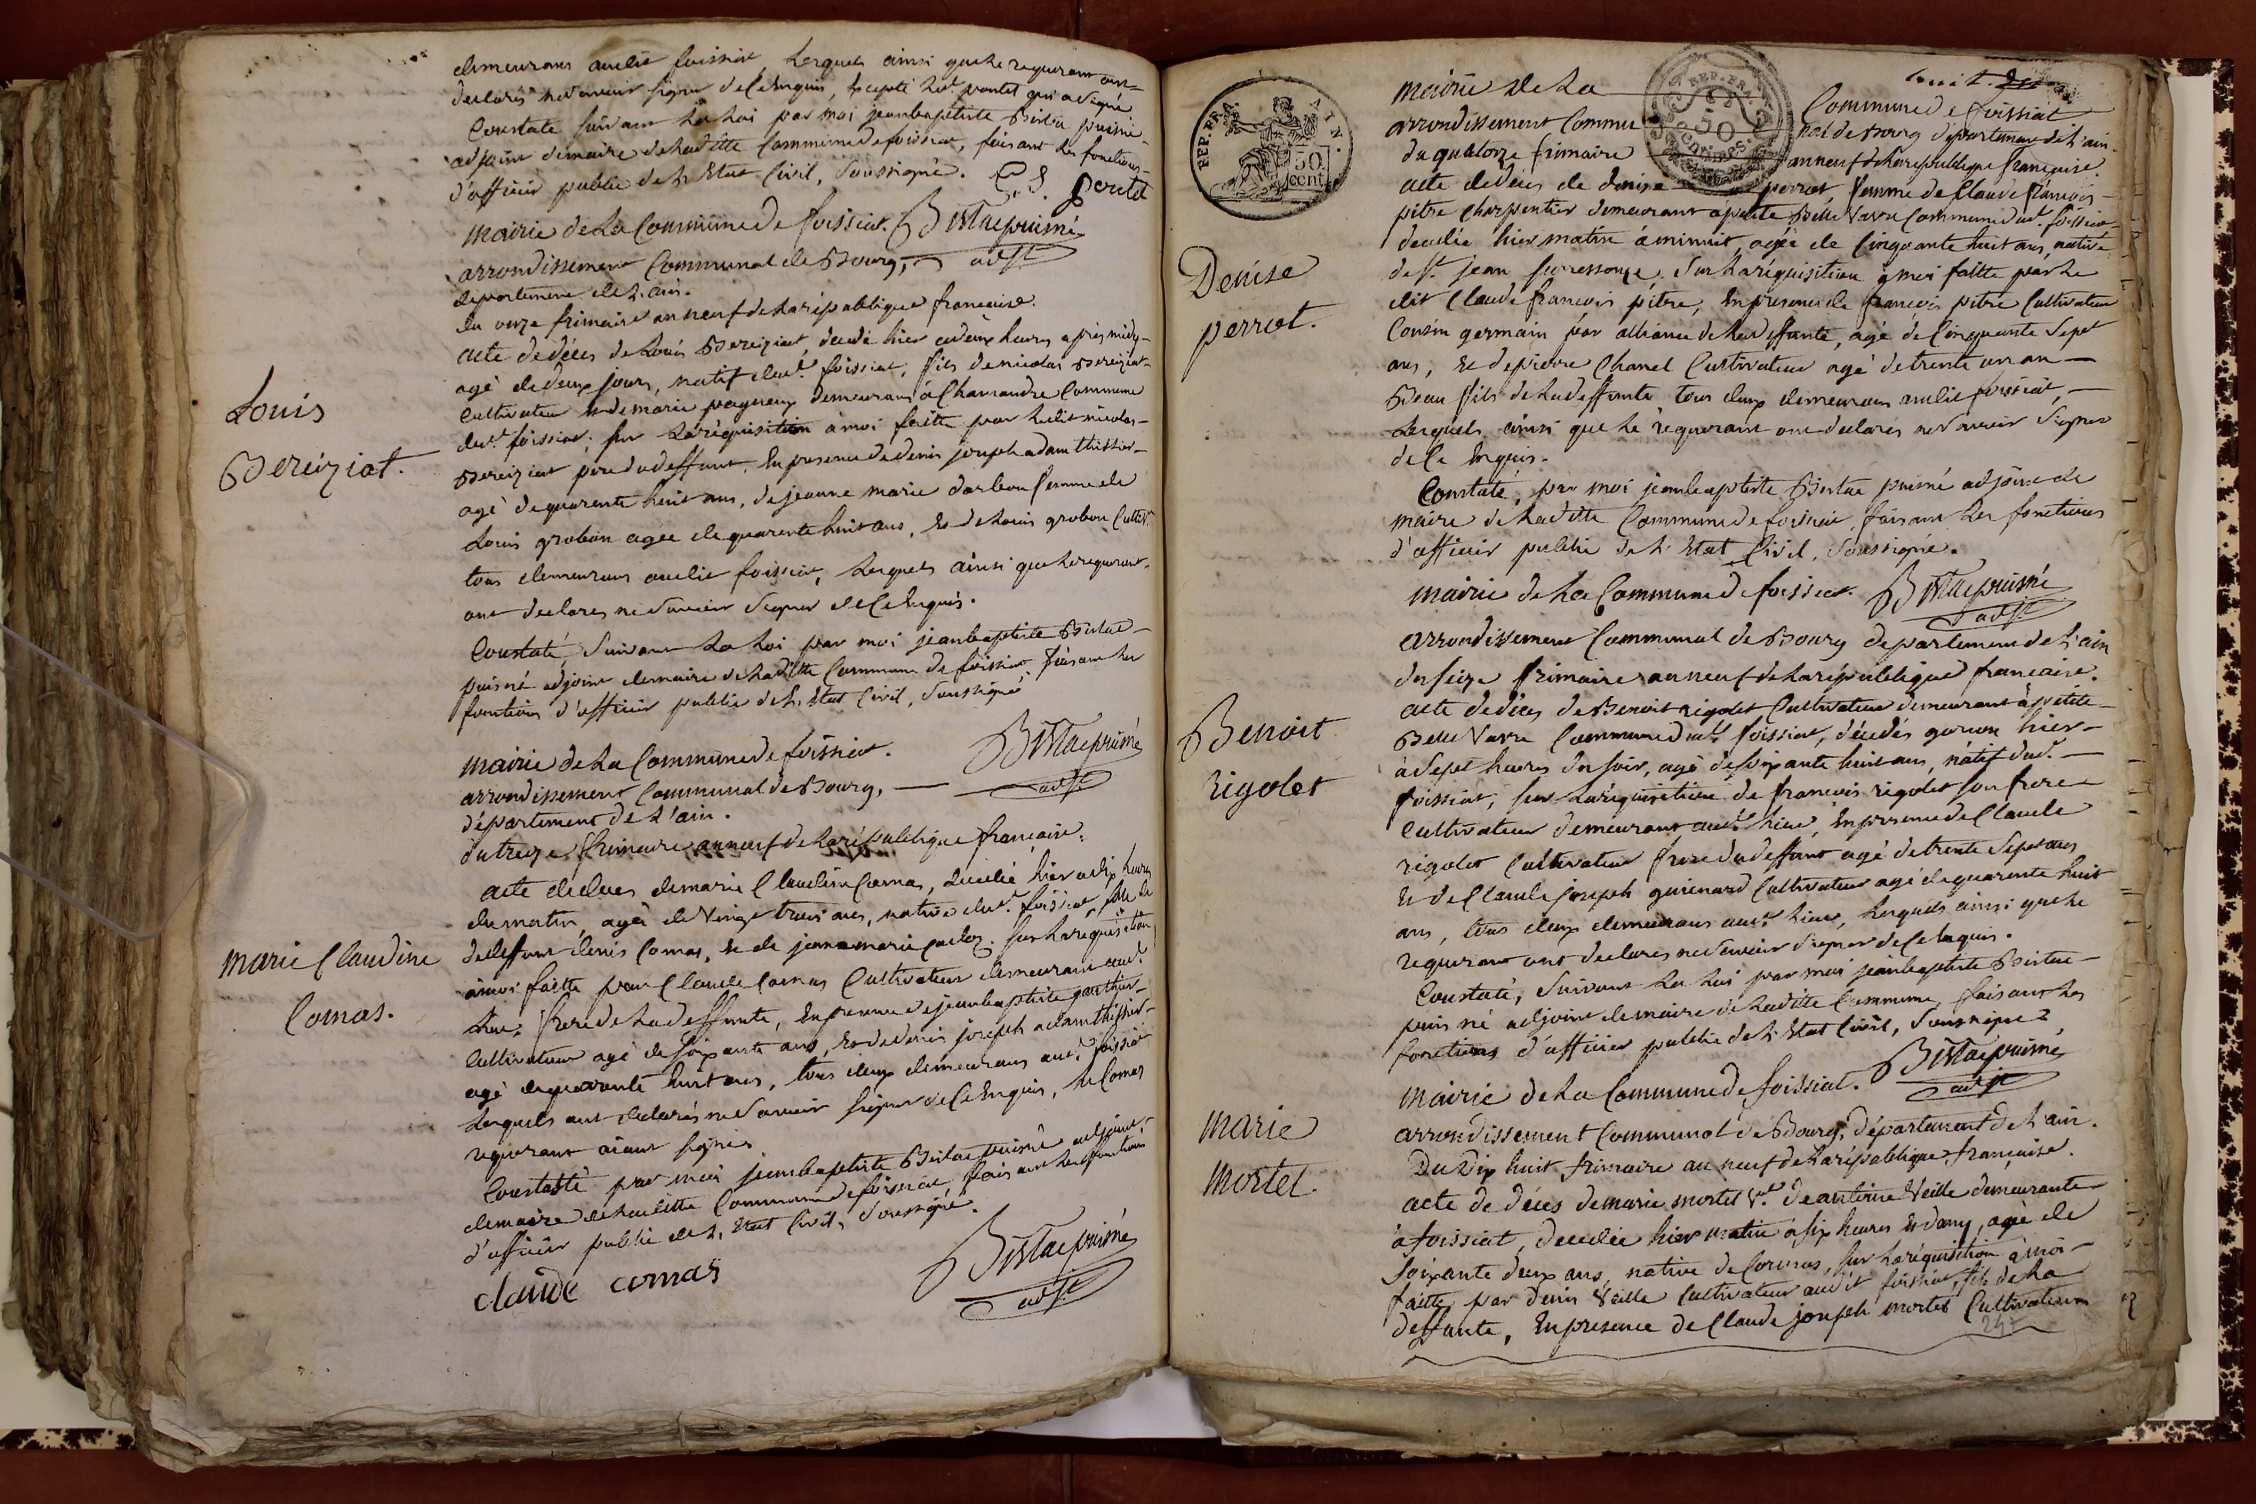 demeurans audit foissiat, lesquels ainsi que le requerant ont
declarés ne savoir signer de ce enquis, excepté led. poutet qui a signé
Constaté suivant la loi par moi jeanbaptiste puisné
adjoint de maire de laditte Commune de foissiat, faisant les fonctions
d'officier public de l'Etat Civil, soussigné. poutet
mairie de la Commune de foissiat. puisné
adjt
arrondissement Communal de Bourg,
departement de l'ain.
du onze frimaire an neuf de la république française.
acte de décès de Louis Bereiziat decedé hier a deux heures après midy
agé de deux jours, natif dud. foissiat, fils de nicolas Bereiziat
Cultivateur et de marie pagneux demeurans à Chamandre Commune
dud. foissiat; sur la réquisition à moi faitte par ledit nicolas
Bereiziat pere du deffunt, En presence de denis joseph adam thissier
agé de quarente huit ans, de jeanne marie darbon femme de
Louis grobon agée de quarente huit ans, et de Louis grobon Cultivr
tous demeurans audit foissiat, lesquels ainsi que le requerant
ont declarés ne savoir signer de ce Enquis.
Constaté, suivant la loi par moi jeanbaptiste
puisné adjoint de maire de laditte Commune de foissiat faisant les
fonctions d'officier public de l'Etat Civil, soussigné
puisné
adjt
mairie de la Commune de foissiat.
arrondissement Communal de Bourg,
département de l'ain.
du treize frimaire an neuf de la république française.
acte de deces de marie Claudine Comas, decedée hier a dix heures
du matin, agée de vingt trois ans, native dud. foissiat, fille de
deffunt denis Comas, et de jeanne marie. sur la requisition
à moi faitte par Claude Comas Cultivateur demeurant aud.
lieu, frere de la deffunte, En presence de jeanbaptiste gauthier
Cultivateur agé de soixante ans, et de denis joseph adam thissier
agé de quarante huit ans, tous deux demeurans aud. foissiat
Lesquels ont declarés ne savoir signer de ce Enquis, le Comas
requerant aiant signé.
Constaté par moi jeanbaptiste puisné adjoint
de maire de laditte Commune de foissiat, faisant les fonctions
d'officier public de l'Etat Civil, soussigné.
puisné
claude comas
adjt
Louis
Bereiziat.
marie Claudine
Comas.
REP. FRA.
AIN.
50
cent.
REP. FRA.
50
Centimes
mairie de la Commune de foissiat
arrondissement Communal de Bourg département de l'ain.
du quatorze frimaire an neuf de la republique française.
acte de déces de denise perrot femme de Claude françois
pitre Charpentier demeurant à petite Belle Vavre Commune dud. foissiat
decedée hier matin à minuit, agée de Cinquante huit ans, native
de St. jean sur ressouze. Sur la réquisition à moi faitte par le
dit Claude françois pitre, En presence de françois pitre Cultivateur
Cousin germain par alliance de la deffunte, agé de Cinquante sept
ans, et de pierre Chanel Cultivateur agé de trente un an
Beau fils de la deffunte tous deux demeurans audit foissiat,
Lesquels ainsi que le requerant ont declarés ne savoir signer
de ce Enquis.
Constaté, par moi jeanbaptiste puisné adjoint de
maire de laditte Commune de foissiat, faisant les fonctions
d'officier public de l'Etat Civil, soussigné.
mairie de la Commune de foissiat. puisné
adjt
arrondissement Communal de Bourg departement de l'ain
du seize frimaire an neuf de la république française.
acte de déces de Benoit rigolet Cultivateur demeurant à petite
Belle Vavre Commune dud. foissiat, décedés garçon hier
à sept heures du soir, agé de soixante huit ans, natif dud.
foissiat, sur la réquisition de françois rigolet son frere
Cultivateur demeurant aud. lieu, En presence de Claude
rigolet Cultivateur frere du deffunt agé de trente sept ans
et de Claude joseph guienard Cultivateur agé de quarente huit
ans, tous deux demeurans aud. lieu, lesquels ainsi que le
requerant ont declarés ne savoir signer de ce Enquis.
Constaté, suivant la loi par moi jeanbaptiste
puisné adjoint de maire de laditte Commune, faisant les
fonctions d'officier public de l'Etat Civil, soussigné,
mairie de la Commune de foissiat. puisné
adjt
arrondissement Communal de Bourg, département de l'ain.
Du Dix huit frimaire an neuf de la république française.
acte de déces de marie mortel Ve. de antoine Veille demeurante
à foissiat, decedée hier matin à six heures et demy, agée de
soixante deux ans, native de, sur la réquisition à moi
faitte par denis Veille Cultivateur audit foissiat, fils de la
deffunte, En presence de Claude joseph mortel Cultivateur
Denise
perrot.
Benoit
rigolet
Marie
Mortel.